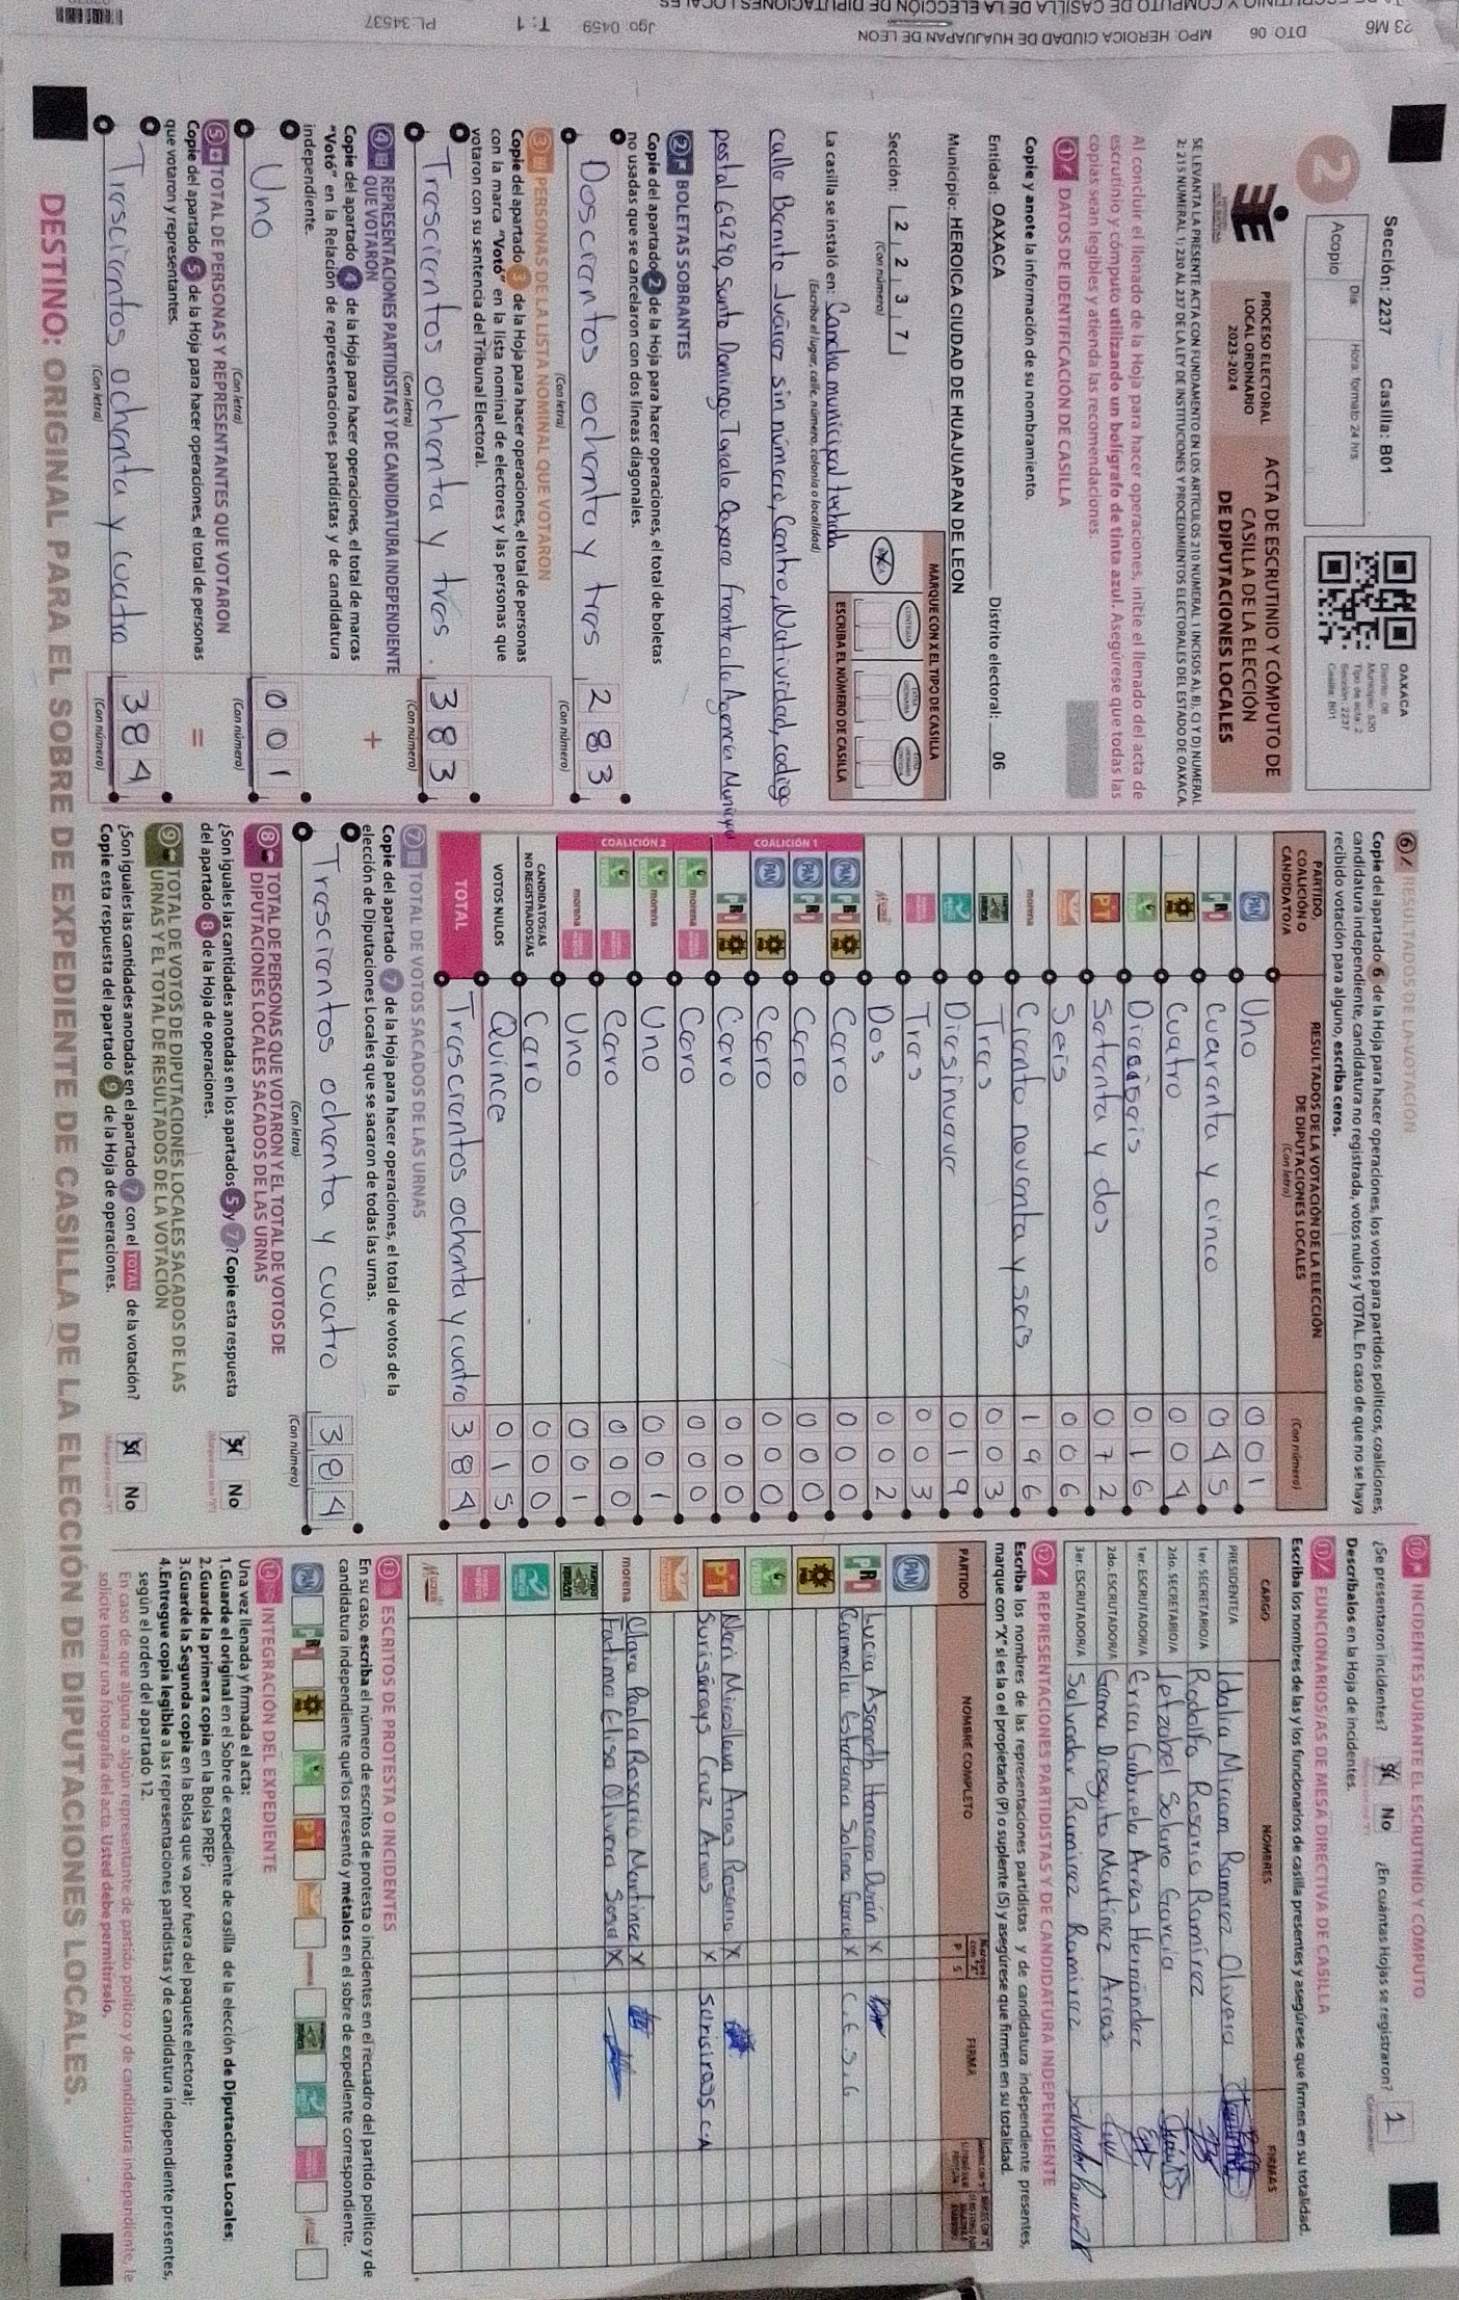 Sección: 2237 Casilla: B01
Día Hora: formato 24 hrs
Acopio
2
OAXACA
Distrito: 06
Municipio: 520
Tipo de acta: 2
Sección: 2237
Casilla: B01
PROCESO ELECTORAL
LOCAL ORDINARIO
2023-2024
ACTA DE ESCRUTINIO Y CÓMPUTO DE
CASILLA DE LA ELECCIÓN
DE DIPUTACIONES LOCALES
SE LEVANTA LA PRESENTE ACTA CON FUNDAMENTO EN LOS ARTÍCULOS 210 NUMERAL 1 INCISOS A), B), C) Y D) NUMERAL
2; 215 NUMERAL 1; 230 AL 237 DE LA LEY DE INSTITUCIONES Y PROCEDIMIENTOS ELECTORALES DEL ESTADO DE OAXACA.
Al concluir el llenado de la Hoja para hacer operaciones, inicie el llenado del acta de
escrutinio y cómputo utilizando un bolígrafo de tinta azul. Asegúrese que todas las
copias sean legibles y atienda las recomendaciones.
1 DATOS DE IDENTIFICACIÓN DE CASILLA
Copie y anote la información de su nombramiento.
Entidad: OAXACA Distrito electoral: 06
Municipio: HEROICA CIUDAD DE HUAJUAPAN DE LEON
Sección: 2 2 3 7
(Con número)
MARQUE CON X EL TIPO DE CASILLA
ESCRIBA EL NÚMERO DE CASILLA
La casilla se instaló en: Cancha municipal techada
(Escriba el lugar, calle, número, colonia o localidad)
calle Benito Juárez sin número, Centro, Natividad, codigo
postal 69290, Santo Domingo Tonala Oaxaca frente a la Agencia Municipal
2 BOLETAS SOBRANTES
Copie del apartado 2 de la Hoja para hacer operaciones, el total de boletas
no usadas que se cancelaron con dos líneas diagonales.
Doscientos ochenta y tres 283
(Con letra) (Con número)
3 PERSONAS DE LA LISTA NOMINAL QUE VOTARON
Copie del apartado 3 de la Hoja para hacer operaciones, el total de personas
con la marca "Votó" en la lista nominal de electores y las personas que
votaron con su sentencia del Tribunal Electoral.
Trescientos ochenta y tres. 383
(Con letra) (Con número)
4 REPRESENTACIONES PARTIDISTAS Y DE CANDIDATURA INDEPENDIENTE
QUE VOTARON
+
Copie del apartado 4 de la Hoja para hacer operaciones, el total de marcas
"Votó" en la Relación de representaciones partidistas y de candidatura
independiente.
Uno 001
(Con letra) (Con número)
5 TOTAL DE PERSONAS Y REPRESENTANTES QUE VOTARON
=
Copie del apartado 5 de la Hoja para hacer operaciones, el total de personas
que votaron y representantes.
Trescientos ochenta y cuatro 384
(Con letra) (Con número)
6 RESULTADOS DE LA VOTACIÓN
Copie del apartado 6 de la Hoja para hacer operaciones, los votos para partidos políticos, coaliciones,
candidatura independiente, candidatura no registrada, votos nulos y TOTAL. En caso de que no se haya
recibido votación para alguno, escriba ceros.
PARTIDO, COALICIÓN O CANDIDATO/A
RESULTADOS DE LA VOTACIÓN DE LA ELECCIÓN DE DIPUTACIONES LOCALES
(Con letra) (Con número)
PAN Uno 001
PRI Cuarenta y cinco 045
PRD Cuatro 004
VERDE Dieciseis 016
PT Setenta y dos 072
Seis 006
morena Ciento noventa y seis 196
Tres 003
Diesinueve 019
Tres 003
Dos 002
COALICIÓN 1
PAN PRI PRD Cero 000
PAN PRI Cero 000
PAN PRD Cero 000
PRI PRD Cero 000
COALICIÓN 2
VERDE morena Cero 000
VERDE morena Uno 001
VERDE Cero 000
morena Uno 001
CANDIDATOS/AS NO REGISTRADOS/AS Cero 000
VOTOS NULOS Quince 015
TOTAL Trescientos ochenta y cuatro 384
7 TOTAL DE VOTOS SACADOS DE LAS URNAS
Copie del apartado 7 de la Hoja para hacer operaciones, el total de votos de la
elección de Diputaciones Locales que se sacaron de todas las urnas.
Trescientos ochenta y cuatro 384
(Con letra) (Con número)
8 TOTAL DE PERSONAS QUE VOTARON Y EL TOTAL DE VOTOS DE
DIPUTACIONES LOCALES SACADOS DE LAS URNAS
¿Son iguales las cantidades anotadas en los apartados 5 y 7? Copie esta respuesta
del apartado 8 de la Hoja de operaciones.
Sí No
9 TOTAL DE VOTOS DE DIPUTACIONES LOCALES SACADOS DE LAS
URNAS Y EL TOTAL DE RESULTADOS DE LA VOTACIÓN
¿Son iguales las cantidades anotadas en el apartado 7 con el TOTAL de la votación?
Copie esta respuesta del apartado 9 de la Hoja de operaciones.
Sí No
10 INCIDENTES DURANTE EL ESCRUTINIO Y CÓMPUTO
¿Se presentaron incidentes? Sí No ¿En cuántas Hojas se registraron? 1
Descríbalos en la Hoja de incidentes.
11 FUNCIONARIOS/AS DE MESA DIRECTIVA DE CASILLA
Escriba los nombres de las y los funcionarios de casilla presentes y asegúrese que firmen en su totalidad.
CARGO NOMBRES FIRMAS
PRESIDENTE/A Idalia Miriam Ramirez Olivera
1er. SECRETARIO/A Rodolfo Rosario Ramirez
2do. SECRETARIO/A Ietzabel Solano Garcia
1er. ESCRUTADOR/A Erica Gabriela Arias Hernández
2do. ESCRUTADOR/A Gema Dieguita Martínez Arias
3er. ESCRUTADOR/A Salvador Ramirez Ramirez
12 REPRESENTACIONES PARTIDISTAS Y DE CANDIDATURA INDEPENDIENTE
Escriba los nombres de las representaciones partidistas y de candidatura independiente presentes,
marque con "X" si es la o el propietario (P) o suplente (S) y asegúrese que firmen en su totalidad.
PARTIDO NOMBRE COMPLETO P S FIRMA
PAN
Lucia Aseneth Duran X
PRI Carmelita Estefania Solano Garcia X C.E.S.G
PRD
VERDE
Neri Mirellava Arias Rosario X
PT Surisarays Cruz Arias X
Clara Paola Rosario Martinez X
morena Fatima Elisa Olivera Sosa X
13 ESCRITOS DE PROTESTA O INCIDENTES
En su caso, escriba el número de escritos de protesta o incidentes en el recuadro del partido político y de
candidatura independiente que los presentó y métalos en el sobre de expediente correspondiente.
14 INTEGRACIÓN DEL EXPEDIENTE
Una vez llenada y firmada el acta:
1.Guarde el original en el Sobre de expediente de casilla de la elección de Diputaciones Locales;
2.Guarde la primera copia en la Bolsa PREP;
3.Guarde la Segunda copia en la Bolsa que va por fuera del paquete electoral;
4.Entregue copia legible a las representaciones partidistas y de candidatura independiente presentes,
según el orden del apartado 12.
En caso de que alguna o algún representante de partido político y de candidatura independiente, le
solicite tomar una fotografía del acta. Usted debe permitírselo.
DESTINO: ORIGINAL PARA EL SOBRE DE EXPEDIENTE DE CASILLA DE LA ELECCIÓN DE DIPUTACIONES LOCALES.
23 M6 DTO: 06 MPO: HEROICA CIUDAD DE HUAJUAPAN DE LEON Jgo: 0459 T: 1 PL: 34537